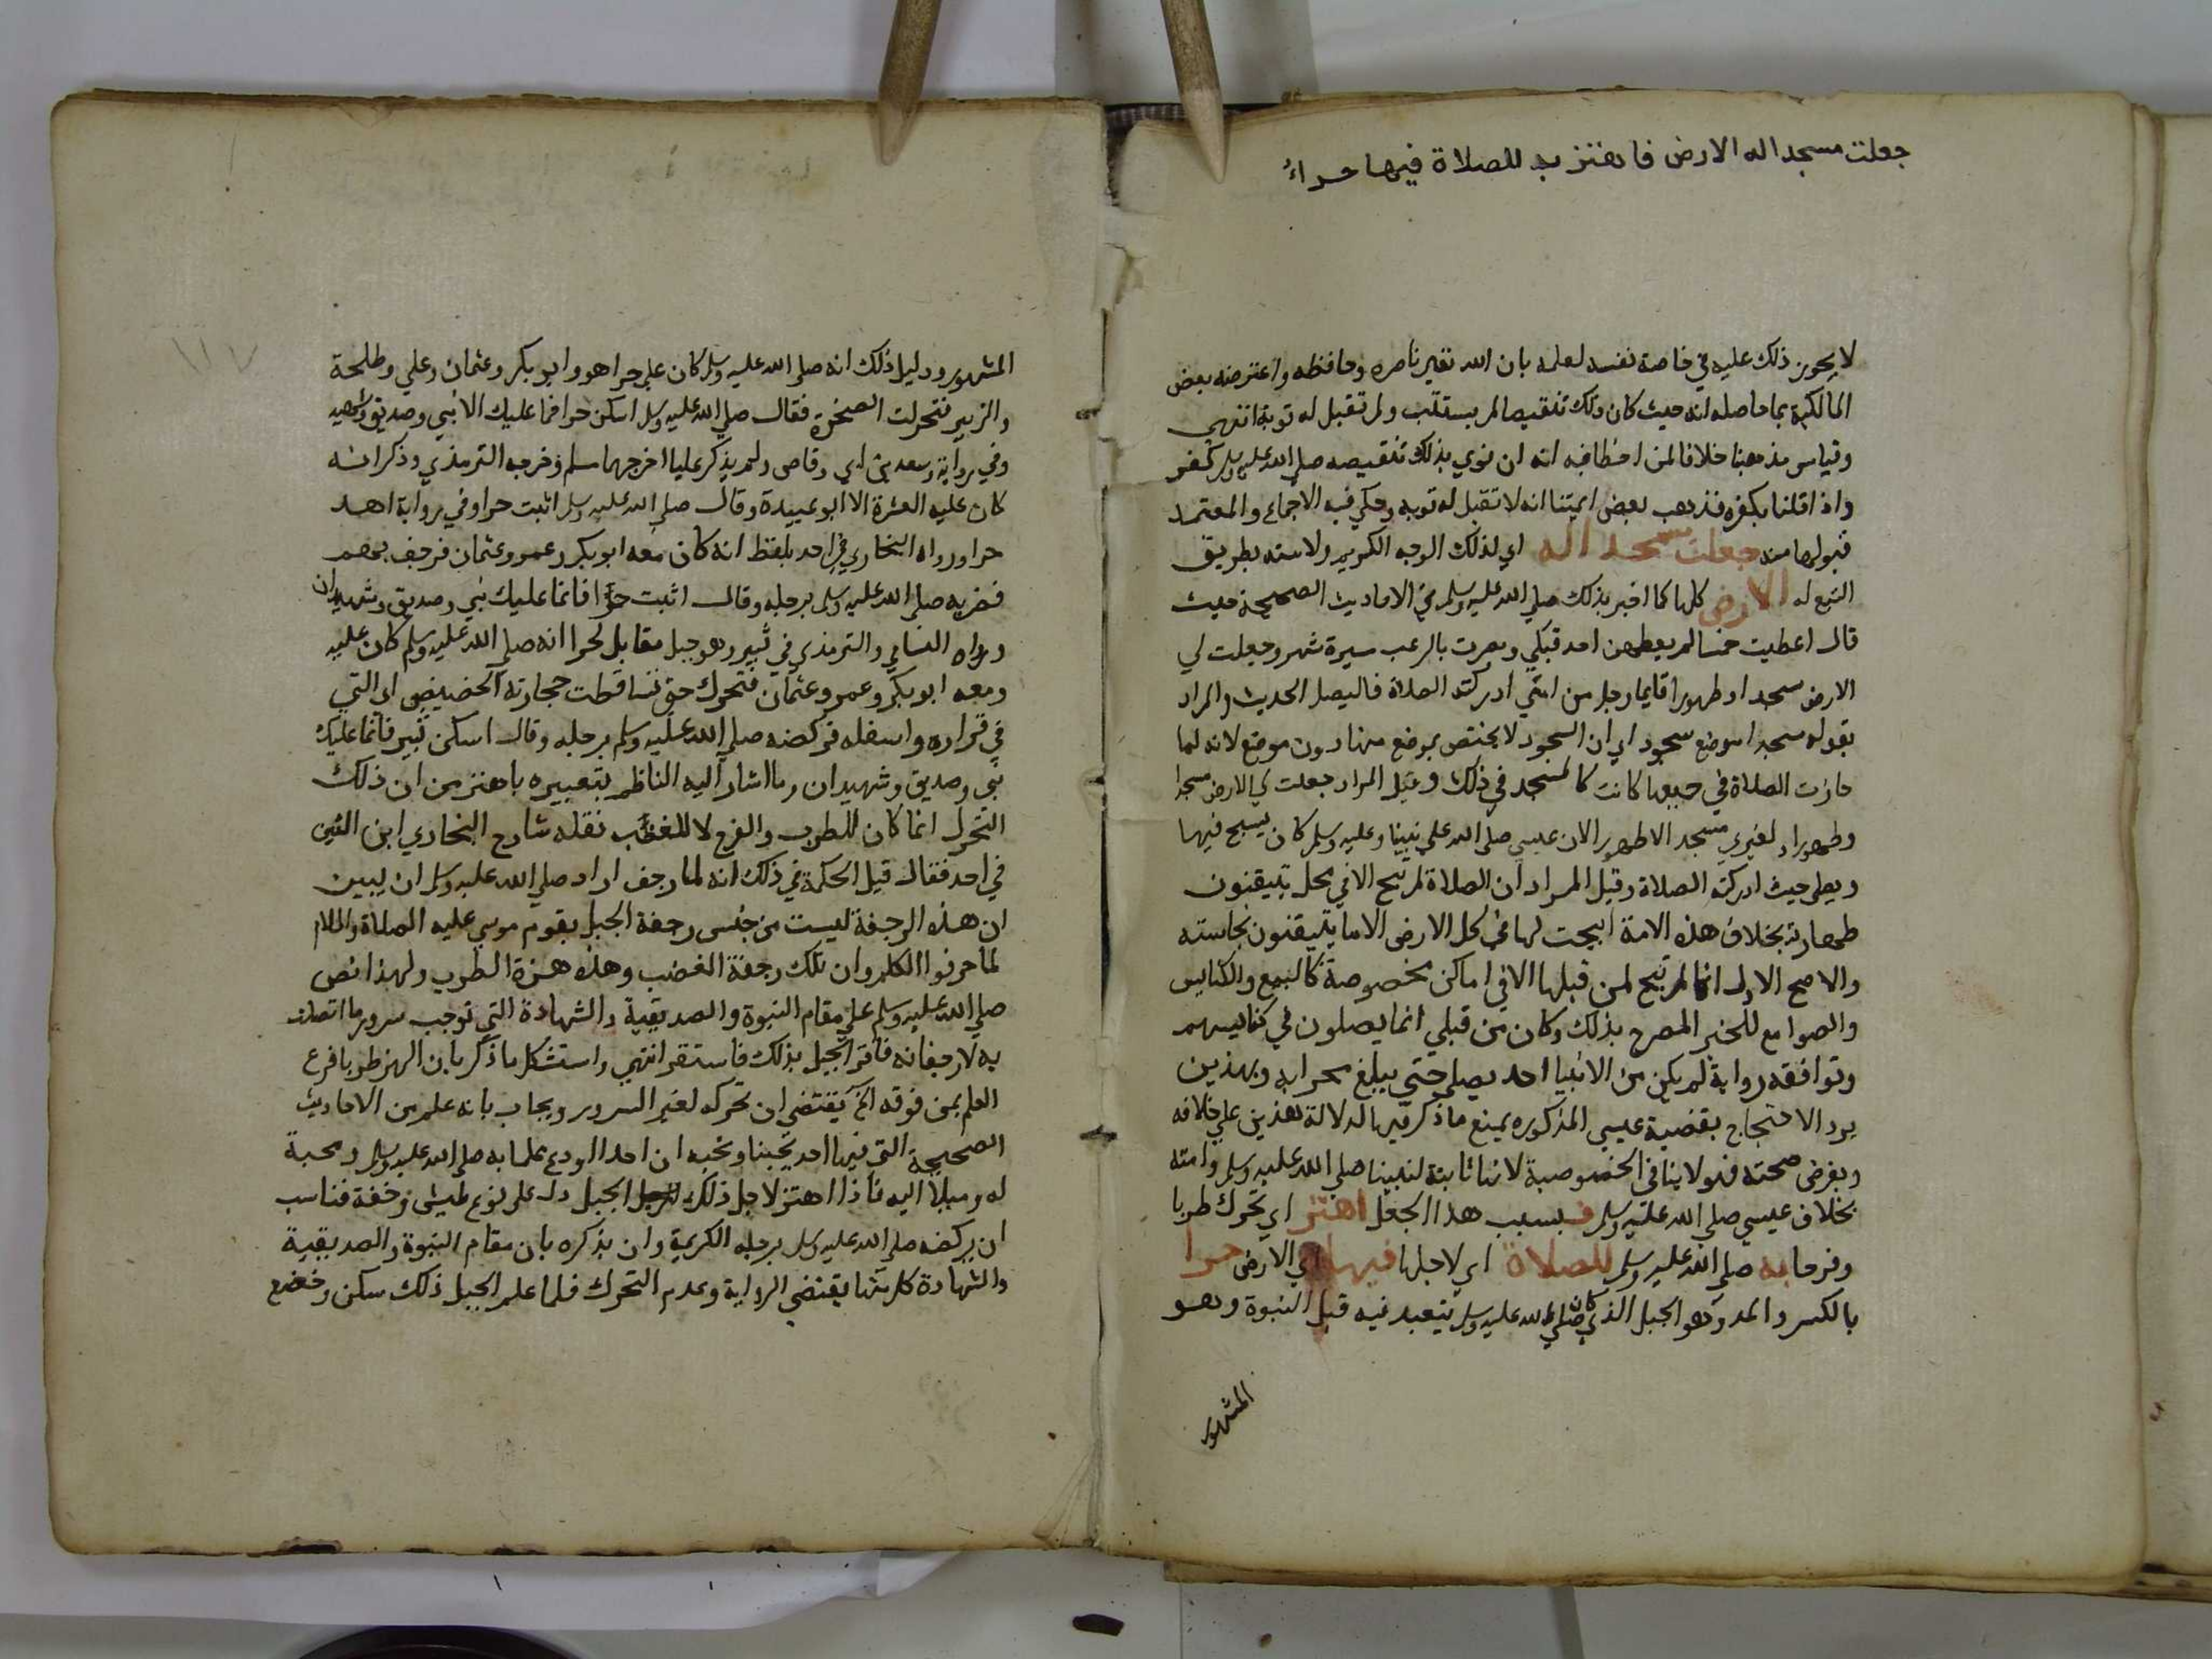 جعلت مسجدا له الارض فاهتز به للصلاة فيها حراءُ
لا يجوز ذلك عليه في خاصة نفسه لعلمه بان الله تعالى ناصره وحافظه واعترضه بعض
المالكية بما حاصله انه حيث كان ذلك تنقيصا لم يستتب ولم تقبل له توبة انتهى
وقياس مذهبنا خلافا لمن اخطا فيه انه ان نوي بذلك تنقيصه صلى الله عليه وسلم كفر
واذا قلنا بكفره فذهب بعض ايمتنا انه لا تقبل له توبه وحكي فيه الاجماع والمعتمد
قبولها منه جعلت مسجدا له اي لذلك الوجه الكريم ولامته بطريق
التبع له الارض كلها كما اخبر بذلك صلى الله عليه وسلم في الاحاديث الصحيحة حيث
قال اعطيت خمسا لم يعطهن احد قبلي ونصرت بالرعب مسيرة شهر وجعلت لي
الارض مسجدا وطهورا فايما رجل من امتي ادركته الصلاة فاليصل الحديث والمراد
بقوله مسجدا موضع سجود اي ان السجود لا يختص بموضع منها دون موضع لانه لما
جازت الصلاة في جميعها كانت كالمسجد في ذلك وقيل المراد جعلت لي الارض مسجدا
وطهورا ولغيري مسجد الا طهورا لان عيسى صلى الله على نبينا وعليه وسلم كان يسيح فيها
ويصلي حيث ادركته الصلاة وقيل المراد ان الصلاة لم تبح الا في محل تتيقنون
طهارته بخلاف هذه الامة ابيحت لها في كل الارض الا ما يتيقنون نجاسته
والاصح الاول انها لم تبح لمن قبلها الا في اماكن مخصوصة كالبيع والكنايس
والصوامع للخبر المصرح بذلك وكان من قبلي انما يصلون في كنايسهم
وتوافقه رواية لم يكن من الانبيا احد يصلي حتي يبلغ محرابه وبهذين
يرد الاحتجاج بقضية عيسي المذكوره يمنع ما ذكر فيها لدلالة هذين علي خلافه
وبفرض صحته فهو لا ينافي الخصوصية لانها ثابتة لنبينا صلى الله عليه وسلم وامته
بخلاف عيسي صلى الله عليه وسلم فبسبب هذا الجعل اهتز اي تحرك طربا
وفرحا به صلى الله عليه وسلم للصلاة اي لاجلها فيها اي الارض حرا
بالكسر والمد وهو الجبل الذي كان صلى الله عليه وسلم يتعبد فيه قبل النبوة وهو
المشهور
١١٧
المشهور ودليل ذلك انه صلى الله عليه وسلم كان علي حرا هو وابو بكر وعثمان وعلي وطلحة
والزبير فتحركت الصخرة فقال صلى الله عليه وسلم اسكن حرا فما عليك الا نبي وصديق وشهيد
وفي رواية وسعد بن ابي وقاص ولم يذكر عليا اخرجهما مسلم وخرجه الترمذي وذكر انه
كان عليه العشرة الا ابو عبيدة وقال صلى الله عليه وسلم اثبت حرا وفي رواية اهد
حرا ورواه البخاري في احد بلفظ انه كان معه ابو بكر وعمر وعثمان فرجف بهم
فضربه صلى الله عليه وسلم برجله وقال اثبت فانما عليك نبي وصديق وشهيدان
ورواه النسايي والترمذي في ثبير وهو جبل مقابل لحرا انه صلى الله عليه وسلم كان عليه
ومعه ابو بكر وعمر وعثمان فتحرك حتي تساقطت حجارته الحضيض اي التي
في قراره واسفله فركضه صلى الله عليه وسلم برجله وقال اسكن ثبير فانما عليك
نبي وصديق وشهيدان وما اشار اليه الناظم بتعبيره باهتز من ان ذلك
التحرك انما كان للطرب والفرح لا للغضب نقله شارح البخاري ابن التين
في احد فقال قيل الحكمة في ذلك انه لما رجف اراد صلى الله عليه وسلم ان يبين
ان هذه الرجفة ليست من جنس رجفة الجبل بقوم موسي عليه الصلاة والسلام
لما حرفوا الكلم وان تلك رجفة الغضب وهذه هزة الطرب ولهذا نص
صلي الله عليه وسلم علي مقام النبوة والصديقية والشهادة التي توجب سرور ما اتصلت
به لا رجفانه فاقر الجبل بذلك فاستقر انتهي واستشكل ما ذكر بان الهز طربا فرع
العلم بمن فوقه الخ يقتضي ان تحركه لغير السرور ويجاب بانه علم من الاحاديث
الصحيحة التي فيها احد يحبنا ونحبه ان احدا اودع علما به صلى الله عليه وسلم ومحبة
له وميلا اليه فاذا اهتز لاجل ذلك الجبل دل علي نوع طيش وخفة فناسب
ان يركضه صلى الله عليه وسلم برجله الكريمة وان يذكره بان مقام النبوة والصديقية
والشهادة كل منها يقتضي الرواية وعدم التحرك فلما علم الجبل ذلك سكن وخضع